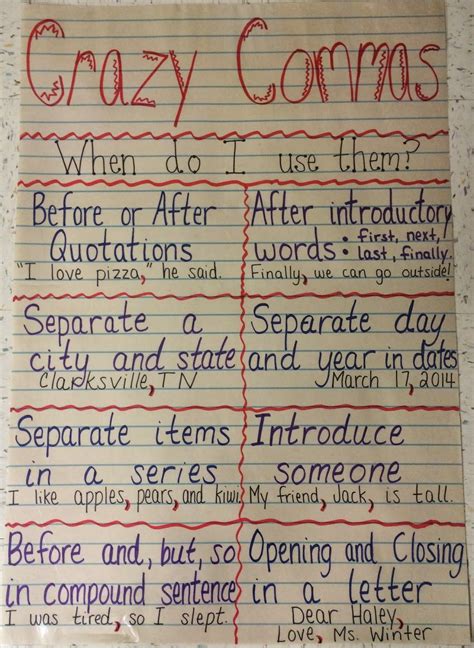 Crazy Commas
When do I use them?
Before or After
Quotations
"I love pizza," he said.
After introductory
words: • first, next,
• last, finally.
Finally, we can go outside!
Separate a
city and state
Clarksville, TN
Separate day
and year in dates
March 17, 2014
Separate items
in a series
I like apples, pears, and kiwi.
Introduce
someone
My friend, Jack, is tall.
Before and, but, so
in compound sentence
I was tired, so I slept.
Opening and Closing
in a letter
Dear Haley,
Love, Ms. Winter